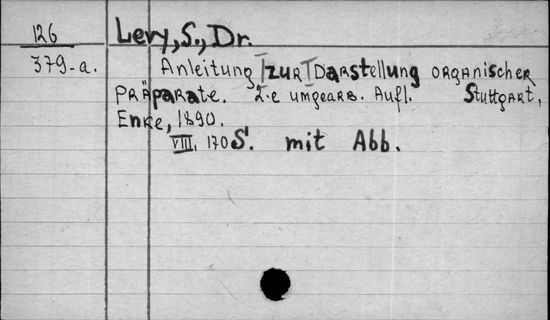 126 Levy, S., Dr.
379-a. Anleitung zur Darstellung organischer
Präparate. 2-e umgearb. Aufl. Stuttgart,
Enke, 1890.
VIII, 170 S. mit Abb.